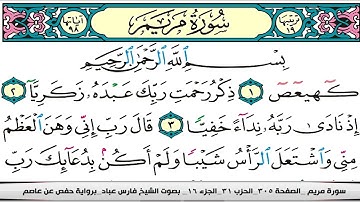 ترتيبها ١٩ سُورَةُ مَرْيَمَ آياتها ٩٨
بِسْمِ ٱللَّهِ ٱلرَّحْمَٰنِ ٱلرَّحِيمِ
كٓهيعٓصٓ ١ ذِكْرُ رَحْمَتِ رَبِّكَ عَبْدَهُۥ زَكَرِيَّآ ٢
إِذْ نَادَىٰ رَبَّهُۥ نِدَآءً خَفِيًّا ٣ قَالَ رَبِّ إِنِّى وَهَنَ ٱلْعَظْمُ
مِنِّى وَٱشْتَعَلَ ٱلرَّأْسُ شَيْبًا وَلَمْ أَكُنۢ بِدُعَآئِكَ رَبِّ
سورة مريم _ الصفحة ٣٠٥ _ الحزب ٣١ _ الجزء ١٦ _ بصوت الشيخ فارس عباد _ برواية حفص عن عاصم